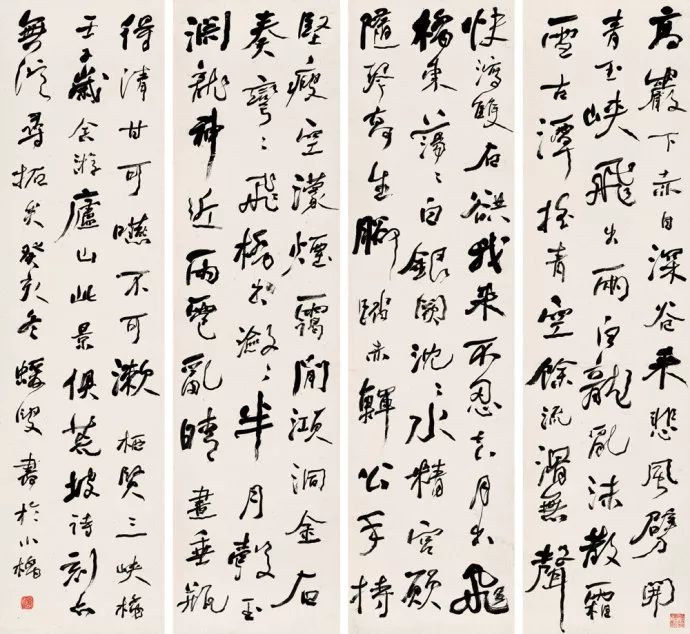 高巖下赤日深谷來悲風劈開
青玉峽飛出兩白龍亂沫散霜
雪古潭搖青空餘流滑無聲
快瀉雙石谼我來不忍去月出飛
橋東蕩〻白銀闕沈〻水精宮願
隨琴高生腳踏赤鯶公手持
堅瘦空濛煙靄間澒洞金石
奏彎〻飛橋出瀲〻半月彀玉
淵龍神近雨雹亂晴晝垂瓶
得清甘可嚥不可漱栖賢三峽橋
壬子歲余游廬山此景俱荒坡詩刻亦
無從尋拓矣癸亥冬叟書於小橋